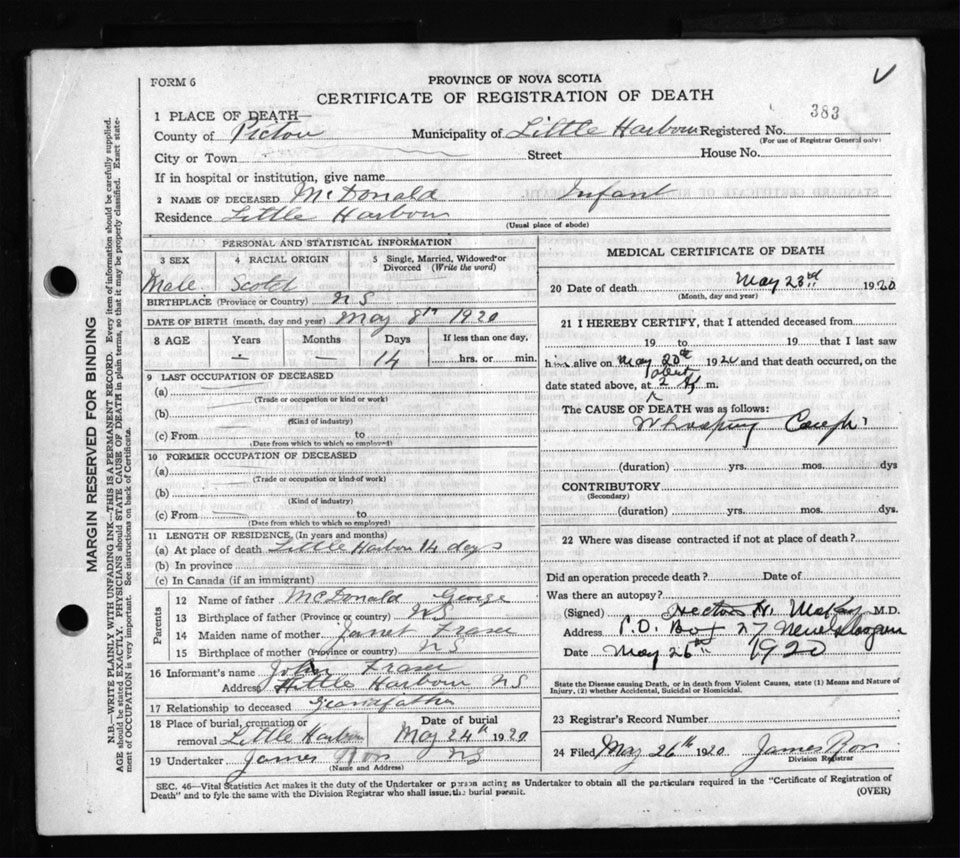 FORM 6
PROVINCE OF NOVA SCOTIA
CERTIFICATE OF REGISTRATION OF DEATH
383
1 PLACE OF DEATH—
County of Pictou Municipality of Little Harbour Registered No.
(For use of Registrar General only)
City or Town Street House No.
If in hospital or institution, give name
2 NAME OF DECEASED McDonald Infant
Residence Little Harbour
(Usual place of abode)
PERSONAL AND STATISTICAL INFORMATION
3 SEX 4 RACIAL ORIGIN 5 Single, Married, Widowed or Divorced (Write the word)
Male Scotch
BIRTHPLACE (Province or Country) N S
DATE OF BIRTH (month, day and year) May 8th 1920
8 AGE Years Months Days If less than one day,
— — 14 hrs. or min.
9 LAST OCCUPATION OF DECEASED
(a)
(Trade or occupation or kind or work)
(b)
(Kind of industry)
(c) From to
(Date from which to which so employed)
10 FORMER OCCUPATION OF DECEASED
(a)
(Trade or occupation or kind of work)
(b)
(Kind of industry)
(c) From to
(Date from which to which so employed)
11 LENGTH OF RESIDENCE, (In years and months)
(a) At place of death Little Harbour 14 days
(b) In province
(c) In Canada (if an immigrant)
Parents
12 Name of father McDonald George
13 Birthplace of father (Province or country) NS
14 Maiden name of mother Janet Fraser
15 Birthplace of mother (Province or country) NS
16 Informant's name John Fraser
Address Little Harbour NS
17 Relationship to deceased Grandfather
18 Place of burial, cremation or removal Little Harbour Date of burial May 24th 1920
19 Undertaker James Ross NS
(Name and Address)
MEDICAL CERTIFICATE OF DEATH
20 Date of death May 23rd 1920
(Month, day and year)
21 I HEREBY CERTIFY, that I attended deceased from
19 to 19 that I last saw
him alive on May 20th 1920 and that death occurred, on the
date stated above, at 2 m.
The CAUSE OF DEATH was as follows:
Whooping Cough
(duration) yrs. mos. dys
CONTRIBUTORY
(Secondary)
(duration) yrs. mos. dys.
22 Where was disease contracted if not at place of death?
Did an operation precede death? Date of
Was there an autopsy?
(Signed) Hector H. McKay M.D.
Address P.O. Box 27 New Glasgow
Date May 26th 1920
State the Disease causing Death, or in death from Violent Causes, state (1) Means and Nature of
Injury, (2) whether Accidental, Suicidal or Homicidal.
23 Registrar's Record Number
24 Filed May 26th 1920 James Ross
Division Registrar
SEC. 46—Vital Statistics Act makes it the duty of the Undertaker or person acting as Undertaker to obtain all the particulars required in the "Certificate of Registration of
Death" and to fyle the same with the Division Registrar who shall issue the burial permit.
(OVER)
MARGIN RESERVED FOR BINDING
N.B.—WRITE PLAINLY WITH UNFADING INK—THIS IS A PERMANENT RECORD. Every item of information should be carefully supplied.
AGE should be stated EXACTLY. PHYSICIANS should STATE CAUSE OF DEATH in plain terms, so that it may be properly classified. Exact state-
ment of OCCUPATION is very important. See instructions on back of Certificate.